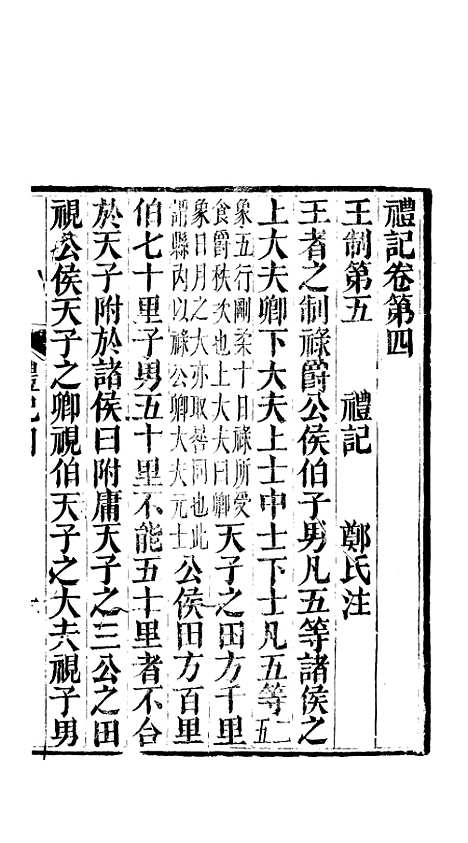 禮記卷第四
王制第五 禮記 鄭氏注
王者之制祿爵公侯伯子男凡五等諸侯之
上大夫卿下大夫上士中士下士凡五等二五
象五行剛柔十日祿所受
食爵秩次也上大夫曰卿
天子之田方千里
象日月之大亦取晷同也此
謂縣內以祿公卿大夫元士
公侯田方百里
伯七十里子男五十里不能五十里者不合
於天子附於諸侯曰附庸天子之三公之田
視公侯天子之卿視伯天子之大夫視子男